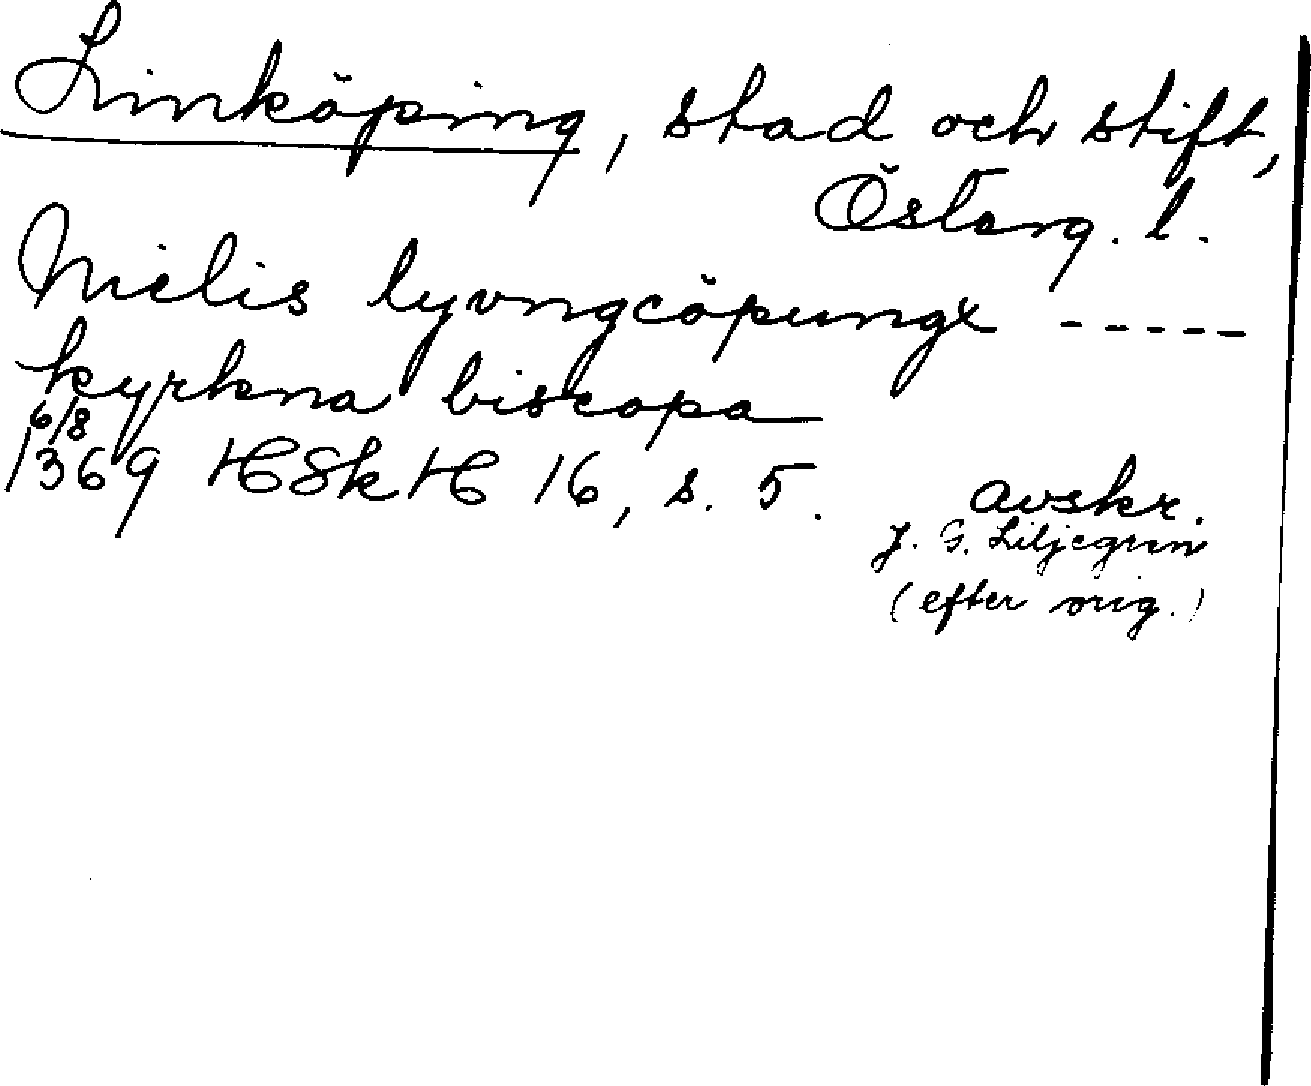 Linköping, stad och stift,
Österg. l.
Nielis lyvngcöpungx -----
kyrkna biscopa
6/8
1369 HSkH 16, s. 5.
avskr.
J. G. Liljegren
(efter orig.)